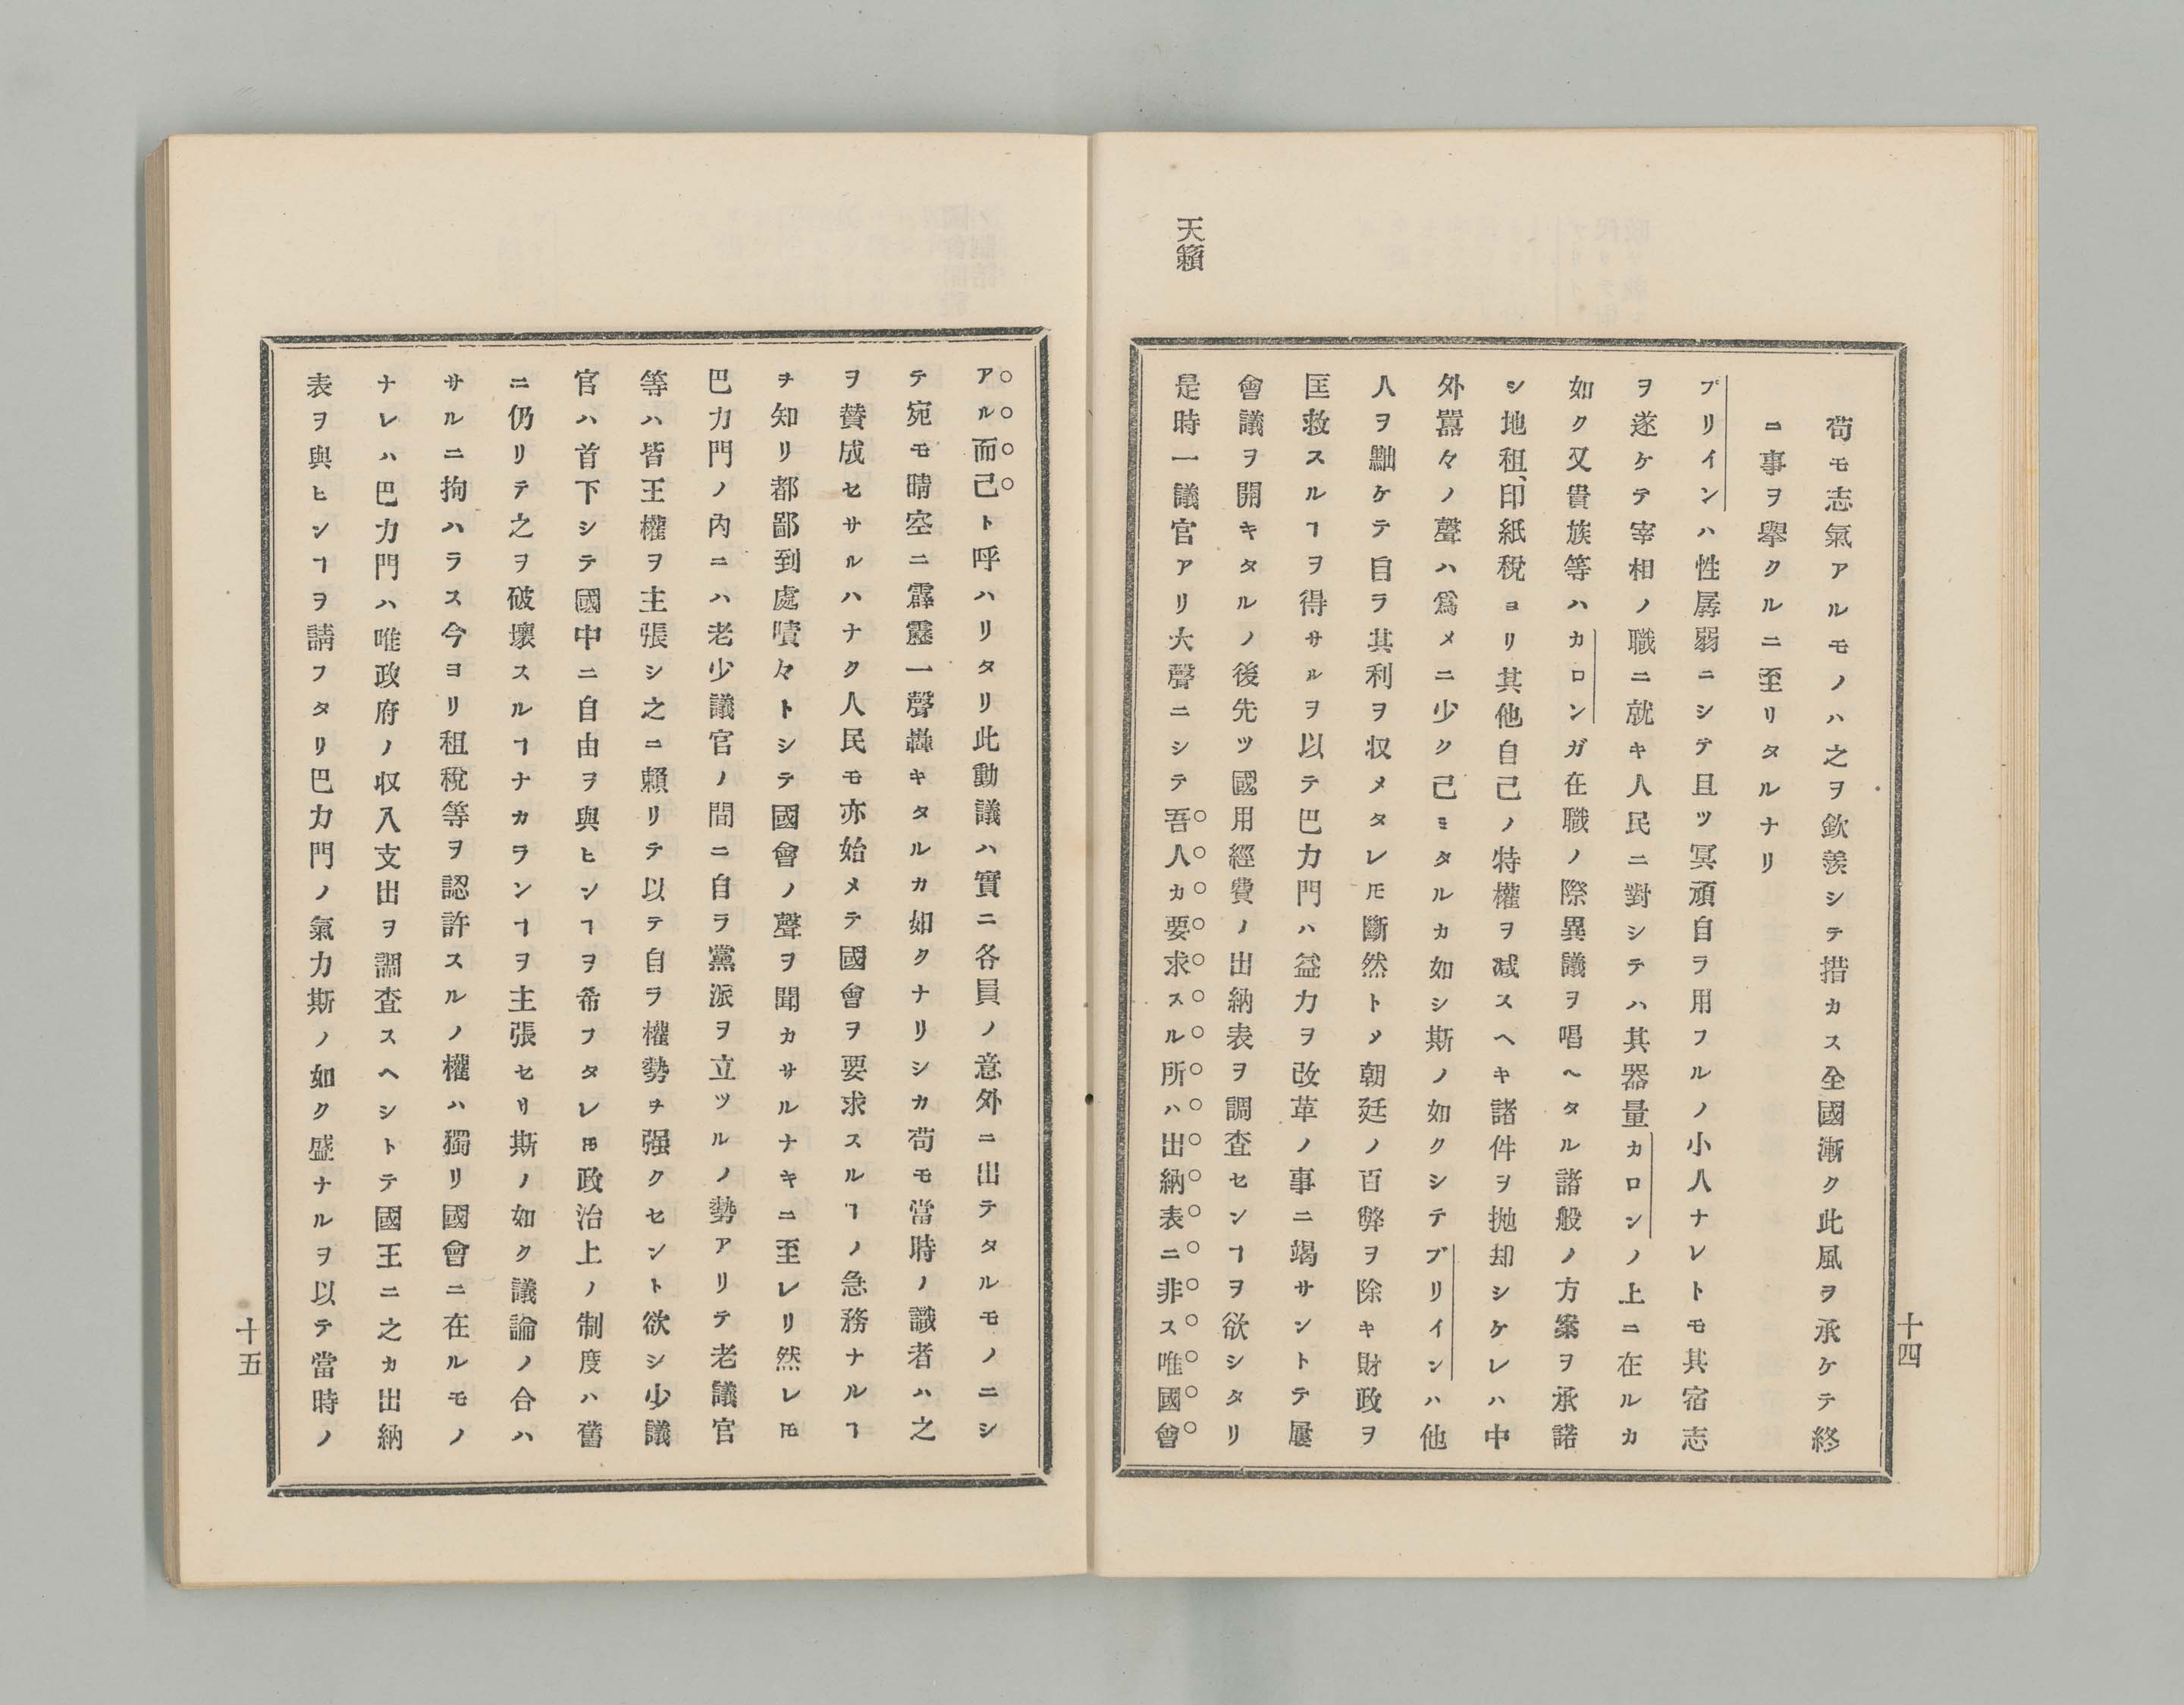 天籟
苟モ志氣アルモノハ之ヲ欽羨シテ措カス全國漸ク此風ヲ承ケテ終
ニ事ヲ擧クルニ至リタルナリ
ブリインハ性孱弱ニシテ且ツ冥頑自ラ用フルノ小人ナレトモ其宿志
ヲ遂ケテ宰相ノ職ニ就キ人民ニ對シテハ其器量カロンノ上ニ在ルカ
如ク又貴族等ハカロンガ在職ノ際異議ヲ唱ヘタル諸般ノ方案ヲ承諾
シ地租、印紙稅ヨリ其他自己ノ特權ヲ减スヘキ諸件ヲ抛却シケレハ中
外囂々ノ聲ハ爲メニ少ク己ミタルカ如シ斯ノ如クシテブリインハ他
人ヲ黜ケテ自ラ其利ヲ収メタレ𪜈斷然トメ朝廷ノ百弊ヲ除キ財政ヲ
匡救スルヿヲ得サルヲ以テ巴力門ハ益力ヲ改革ノ事ニ竭サントテ屢
會議ヲ開キタルノ後先ツ國用經費ノ出納表ヲ調査センヿヲ欲シタリ
是時一議官アリ大聲ニシテ吾人カ要求スル所ハ出納表ニ非ス唯國會
十四
アル而己ト呼ハリタリ此動議ハ實ニ各員ノ意外ニ出テタルモノニシ
テ宛モ晴空ニ霹靂一聲轟キタルカ如クナリシカ苟モ當時ノ識者ハ之
ヲ賛成セサルハナク人民モ亦始メテ國會ヲ要求スルヿノ急務ナルヿ
ヲ知リ都鄙到處嘖々トシテ國會ノ聲ヲ聞カサルナキニ至レリ然レ𪜈
巴力門ノ內ニハ老少議官ノ間ニ自ラ黨派ヲ立ツルノ勢アリテ老議官
等ハ皆王權ヲ主張シ之ニ賴リテ以テ自ラ權勢ヲ强クセント欲シ少議
官ハ首下シテ國中ニ自由ヲ與ヒンヿヲ希フタレ𪜈政治上ノ制度ハ舊
ニ仍リテ之ヲ破壞スルヿナカランヿヲ主張セリ斯ノ如ク議論ノ合ハ
サルニ拘ハラス今ヨリ租稅等ヲ認許スルノ權ハ獨リ國會ニ在ルモノ
ナレハ巴力門ハ唯政府ノ収入支出ヲ調査スヘシトテ國王ニ之カ出納
表ヲ與ヒンヿヲ請フタリ巴力門ノ氣力斯ノ如ク盛ナルヲ以テ當時ノ
十五